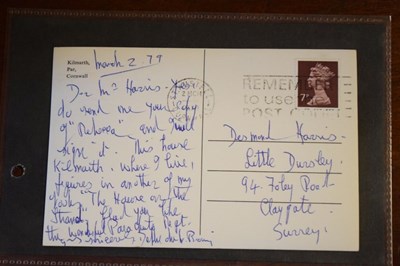 Kilmarth,
Par,
Cornwall
March 2. 77
Dear Mr Harris - Yes,
do send me your copy
of "Rebecca" and I will
sign it. This house
Kilmarth, where I live,
figures in another of my
books "The House on the
Strand". Glad you like
this wonderful Part of the
Yours sincerely Daphne du Maurier
REMEMBER
to use
POST CODE
7P
Desmond Harris -
Little Dursley -
94 Foley Road -
Claygate -
Surrey -